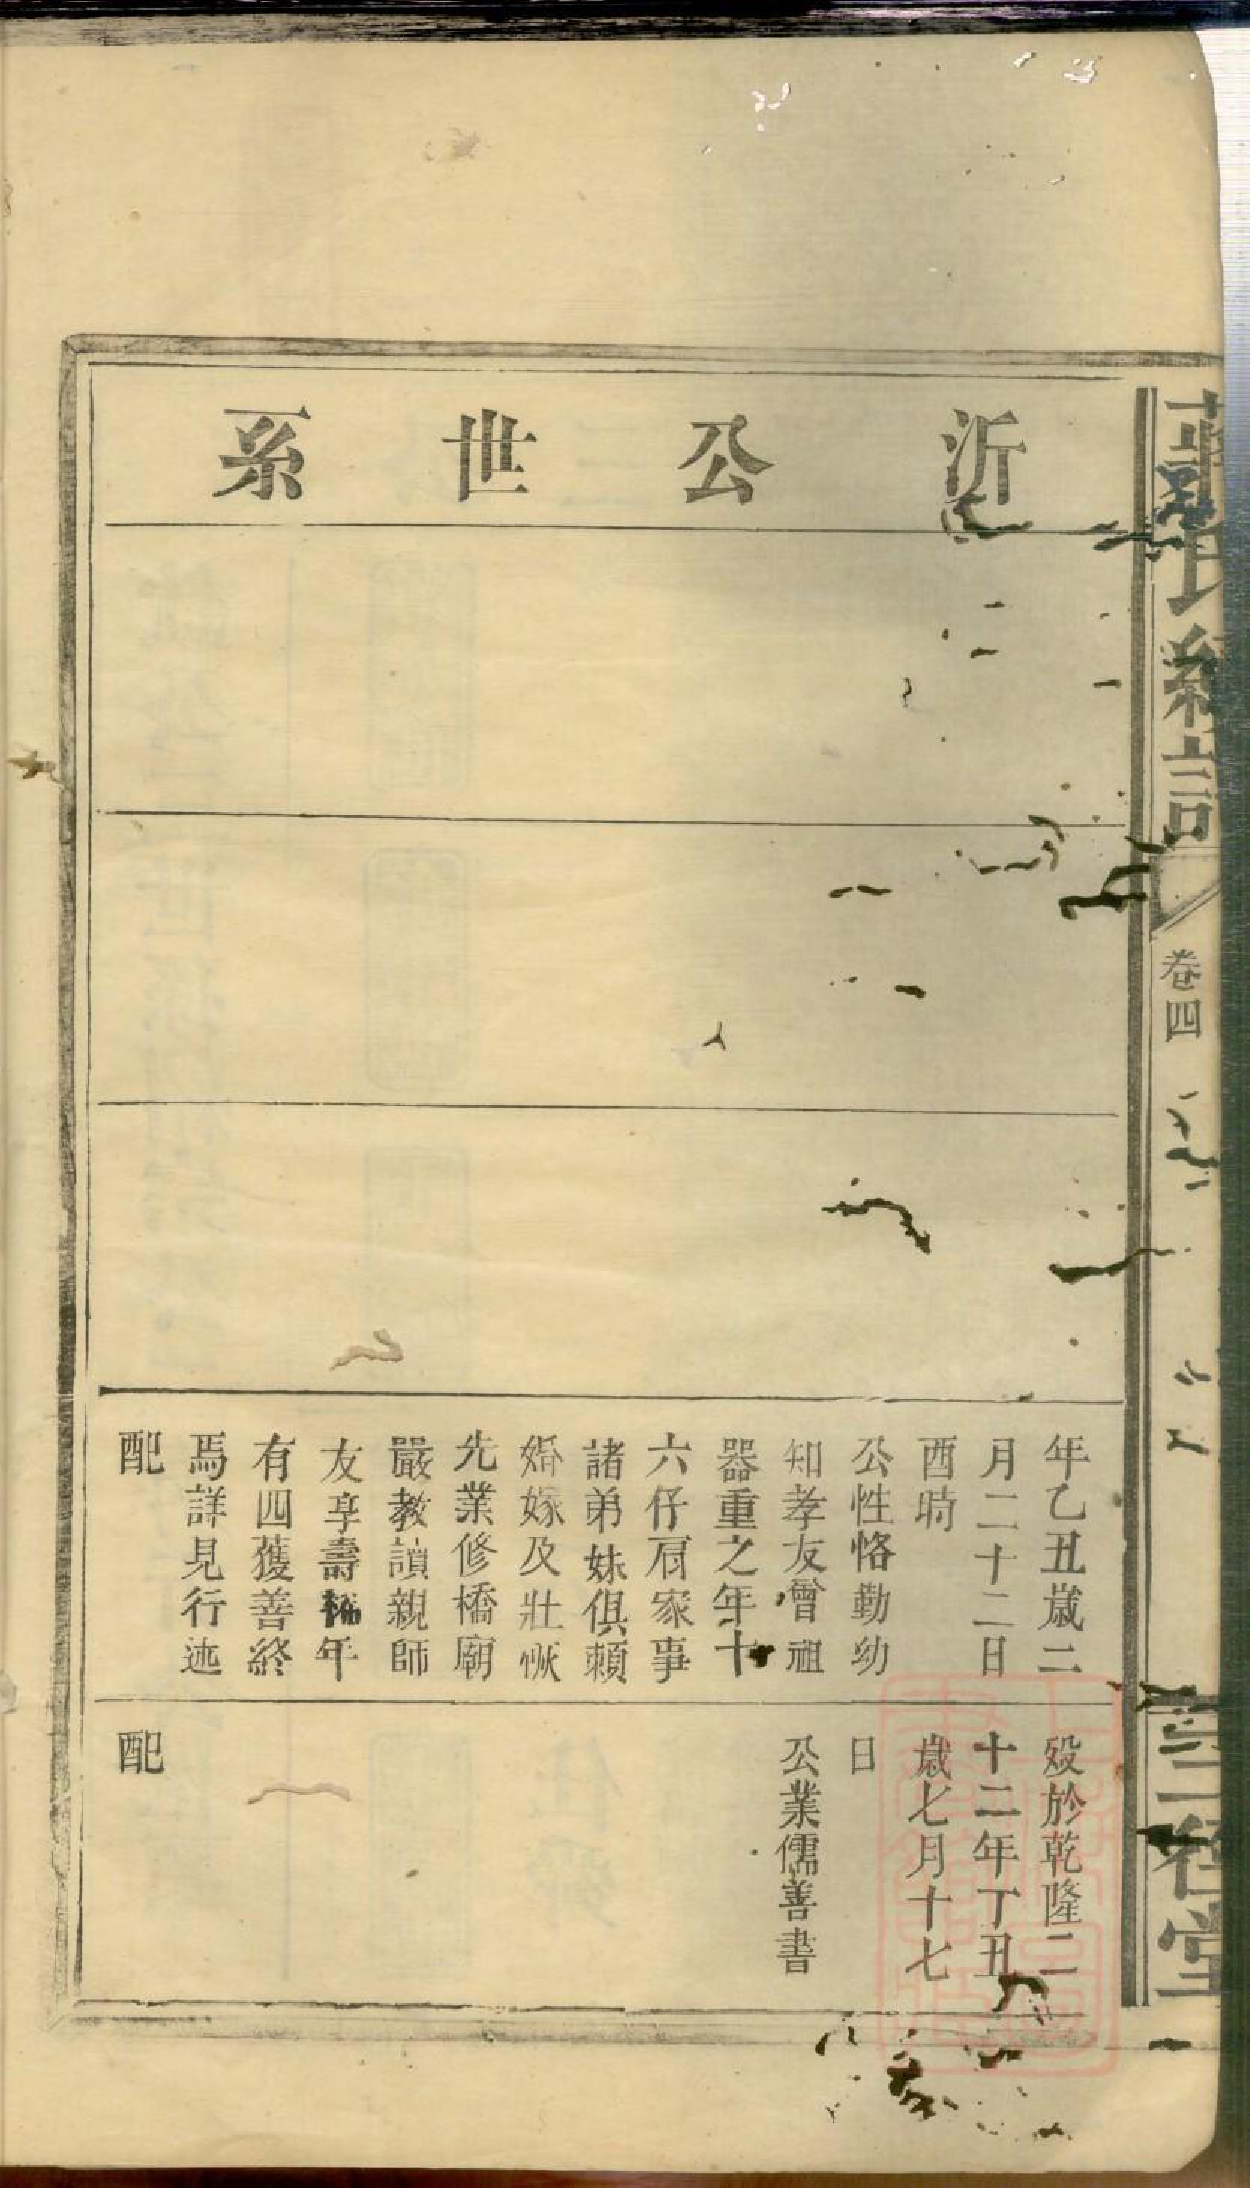 沂公世系
年乙丑歲二
月二十二日
酉時
公性恪勤幼
知孝友曾祖
器重之年十
六仔肩家事
諸弟妹俱賴
婚嫁及壯恢
先業修橋廟
嚴教讀親師
友享壽年
有四獲善終
焉詳見行述
配
殁於乾隆二
十二年丁丑
歲七月十七
日
公業儒善書
配
蔣氏續譜
卷四
三徑堂